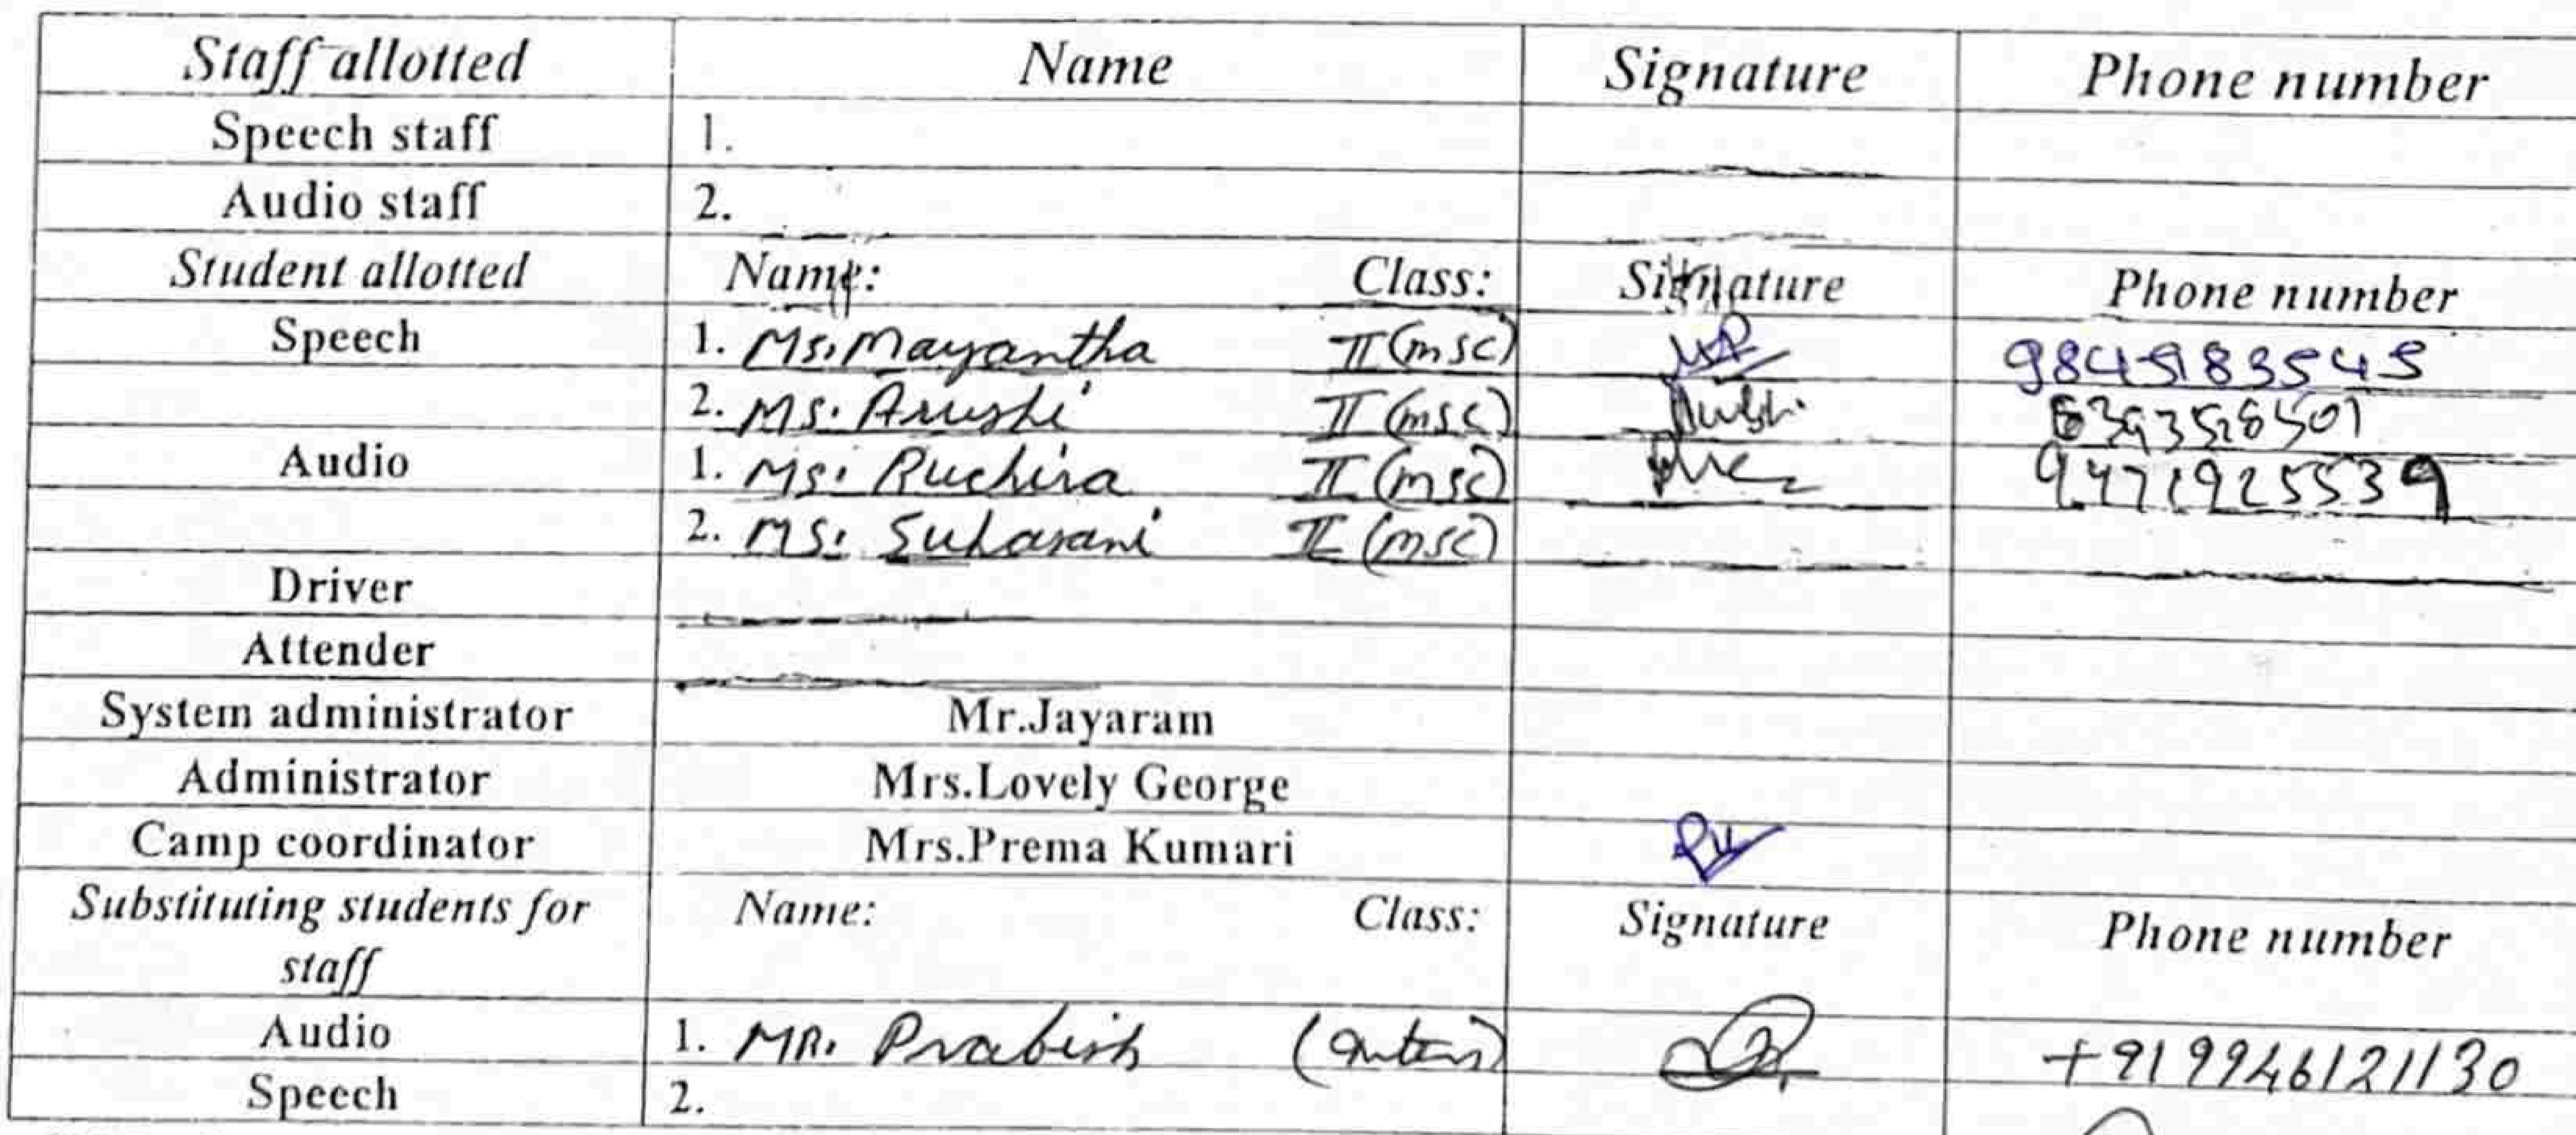 Staff allotted Name Signature Phone number
Speech staff 1.
Audio staff 2.
Student allotted Name: Class: Signature Phone number
Speech 1. Ms. Mayantha II (msc) 9845183545
2. Ms. Arushi II (msc)
Audio 1. Ms. Ruchira II (msc)
2. Ms. Suhasani II (msc)
Driver
Attender
System administrator Mr.Jayaram
Administrator Mrs.Lovely George
Camp coordinator Mrs.Prema Kumari
Substituting students for Name: Class: Signature Phone number
staff
Audio 1. MR. Prabish +919946121130
Speech 2.